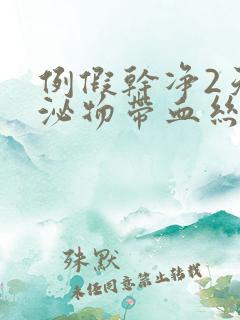 例假幹净2天
泌物帶血絲
殊默
未经同意禁止转载